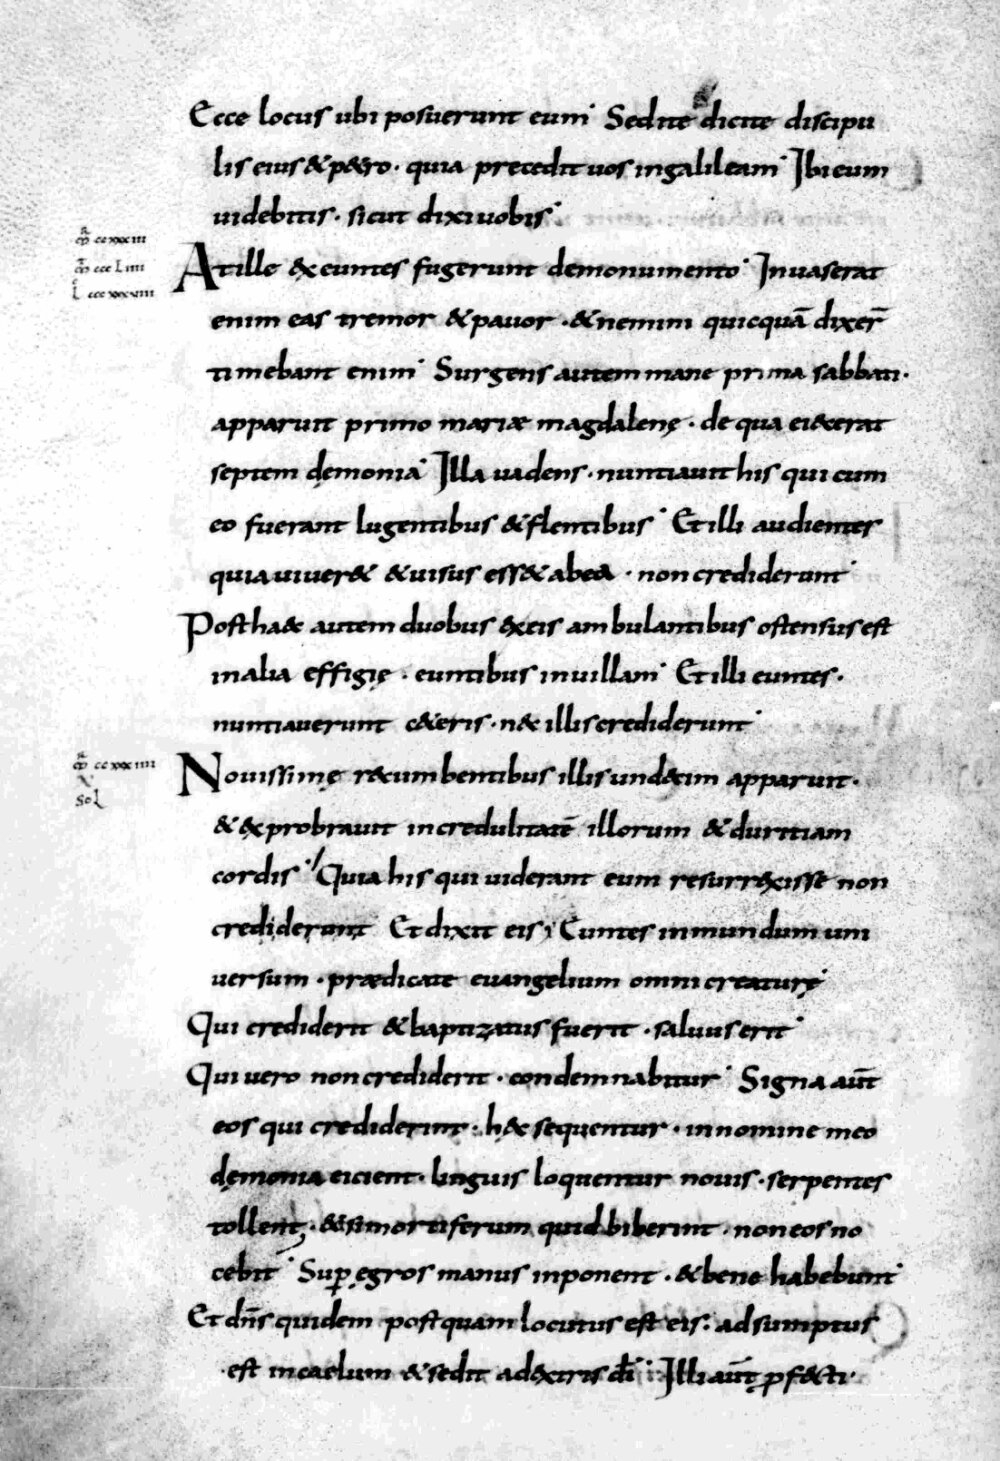 Ecce locus ubi posuerunt eum· Sed ite dicite discipu
lis eius & p&ro· quia precedit uos in galileam· Ibi eum
uidebitis· sicut dixi uobis·
cc xxx iii
ccc L iiii
L ccc xxx viii
At ille exeuntes fugerunt de monumento· Inuaserat
enim eas tremor & pauor· & nemini quicquā dixer̄
timebant enim· Surgens autem mane prima sabbati·
apparuit primo mariæ magdalenę· de qua eiecerat
septem dęmonia· Illa uadens· nuntiauit his qui cum
eo fuerant lugentibus & flentibus· Et illi audientes
quia uiuer& & uisus ess& ab ea· non crediderunt·
Post haec autem duobus ex eis ambulantibus ostensus est
in alia effigię· euntibus in uillam· Et illi euntes·
nuntiauerunt c&eris· nec illis crediderunt·
cc xxx iiii
X
Sol
Nouissimę recumbentibus illis undecim apparuit·
& exprobrauit incredulitatē illorum & duritiam
cordis· Quia his qui uiderant eum resurrexisse non
crediderunt· Et dixit eis; Euntes in mundum uni
uersum· prædicate euangelium omni creaturę·
Qui crediderit & baptizatus fuerit· saluus erit·
Qui uero non crediderit· condemnabitur· Signa aūt
eos qui crediderint· haec sequentur· in nomine meo
dęmonia eicient· linguis loquentur nouis· serpentes
tollent· & si mortiferum quid biberint· non eos no
cebit· Sup̱ ęgros manus inponent· & bene habebunt·
Et dn̄s quidem postquam locutus est eis: adsumptus
est in caelum & sedit a dextris dī· Illi aūt ꝓfecti·